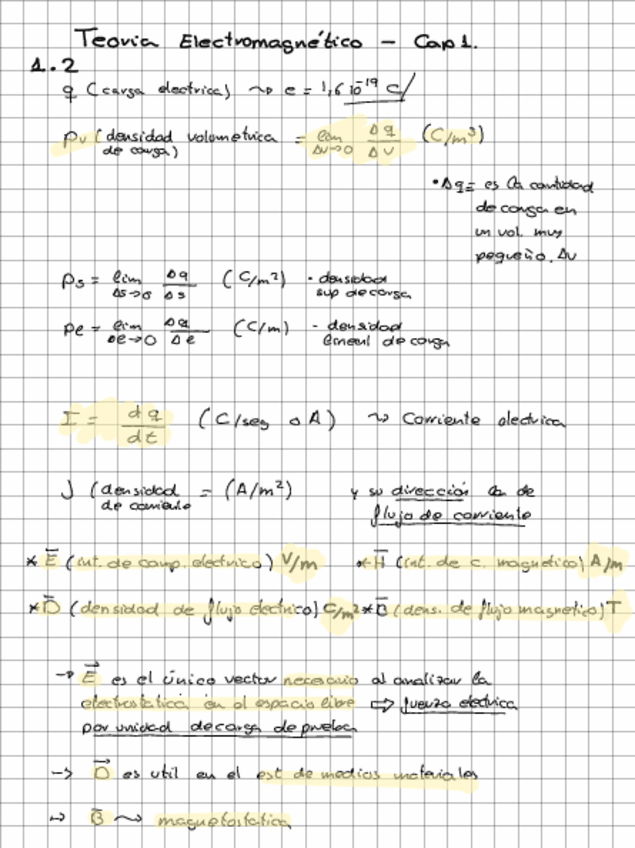 Teoria Electromagnético - Cap 1.
1.2
q (carga electrica) ~> e = 1,6 10^-19 C/
ρv (densidad volumetrica de carga) = lim Δv→0 Δq/Δv (C/m³)
• Δq = es la cantidad
de carga en
un vol. muy
pequeño. Δv
ρs = lim Δs→0 Δq/Δs (C/m²) · densidad sup de carga
ρℓ = lim Δℓ→0 Δq/Δℓ (C/m) - densidad lineal de carga
I = dq/dt (C/seg o A) ~> Corriente electrica
J (densidad de corriente = (A/m²) y su dirección la de flujo de corriente
* E (int. de camp. electrico) V/m * H (int. de c. magnetico) A/m
* D (densidad de flujo electrico) C/m² * B (dens. de flujo magnetico) T
→ E es el único vector necesario al analizar la
electrostatica en el espacio libre ⇒ fuerza electrica
por unidad de carga de prueba
→ D es util en el est de medios materiales
→ B ~> magnetostatica